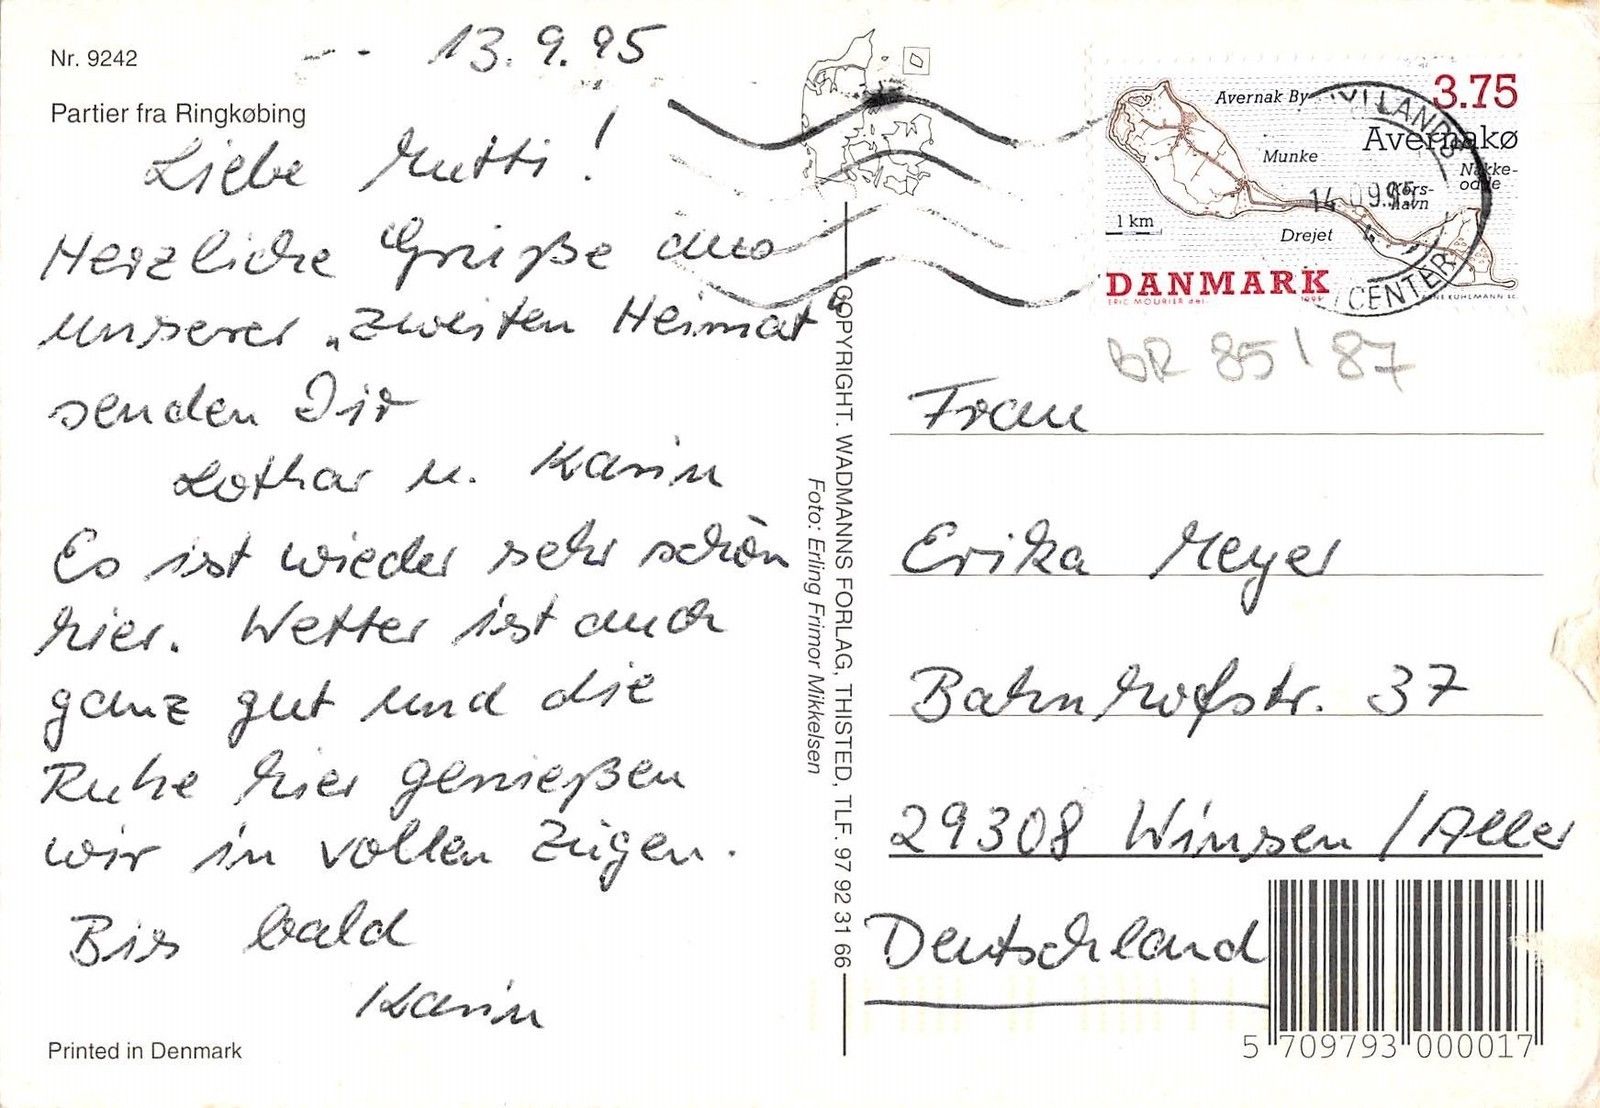 Nr. 9242
13.9.95
Partier fra Ringkøbing
Liebe Mutti!
Herzliche Grüße aus
unserer „zweiten Heimat“
senden Dir
Lothar u. Karin
Es ist wieder sehr schön
hier. Wetter ist auch
ganz gut und die
Ruhe hier genießen
wir in vollen Zügen.
Bis bald
Karin
Printed in Denmark
COPYRIGHT. WADMANNS FORLAG, THISTED, TLF. 97 92 31 66
Foto: Erling Frimor Mikkelsen
3.75
Avernakø
Avernak By
Munke
Nakke-
odde
Kors-
havn
Drejet
1 km
DANMARK
ERIC MOURIER del.
1995
14.09.95
CENTER
BR 85/87
Frau
Erika Meyer
Bahnhofstr. 37
29308 Winsen/Aller
Deutschland
5 709793 000017